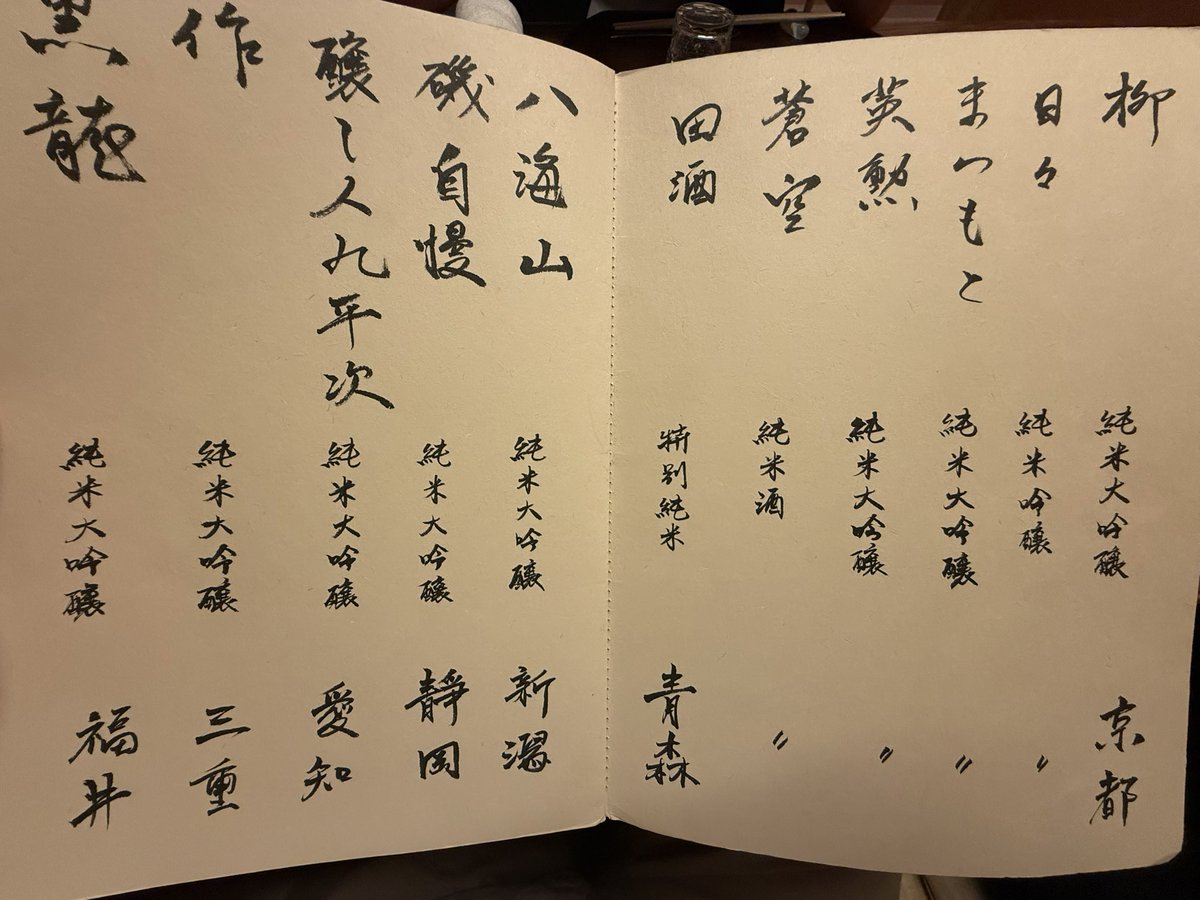 柳 純米大吟醸 京都
日々 純米吟醸 〃
まつもと 純米大吟醸 〃
英勲 純米大吟醸 〃
蒼空 純米酒 〃
田酒 特別純米 青森
八海山 純米大吟醸 新潟
磯自慢 純米大吟醸 静岡
醸し人九平次 純米大吟醸 愛知
作 純米大吟醸 三重
黒龍 純米大吟醸 福井